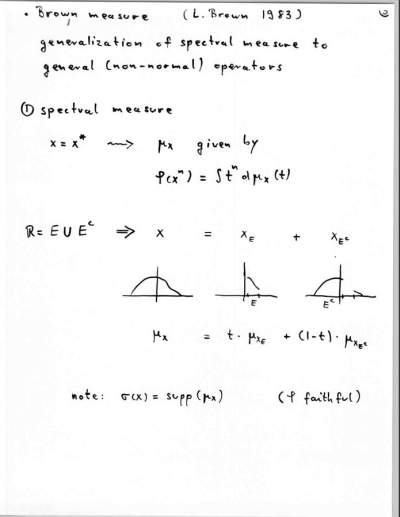 • Brown measure (L. Brown 1983)
generalization of spectral measure to
general (non-normal) operators
① spectral measure
x = x* ⇝ μx given by
φ(xⁿ) = ∫tⁿ dμx(t)
R = E ∪ Eᶜ ⇒ x = x_E + x_Eᶜ
E Eᶜ
μx = t · μx_E + (1-t) · μx_Eᶜ
note: σ(x) = supp(μx) (φ faithful)